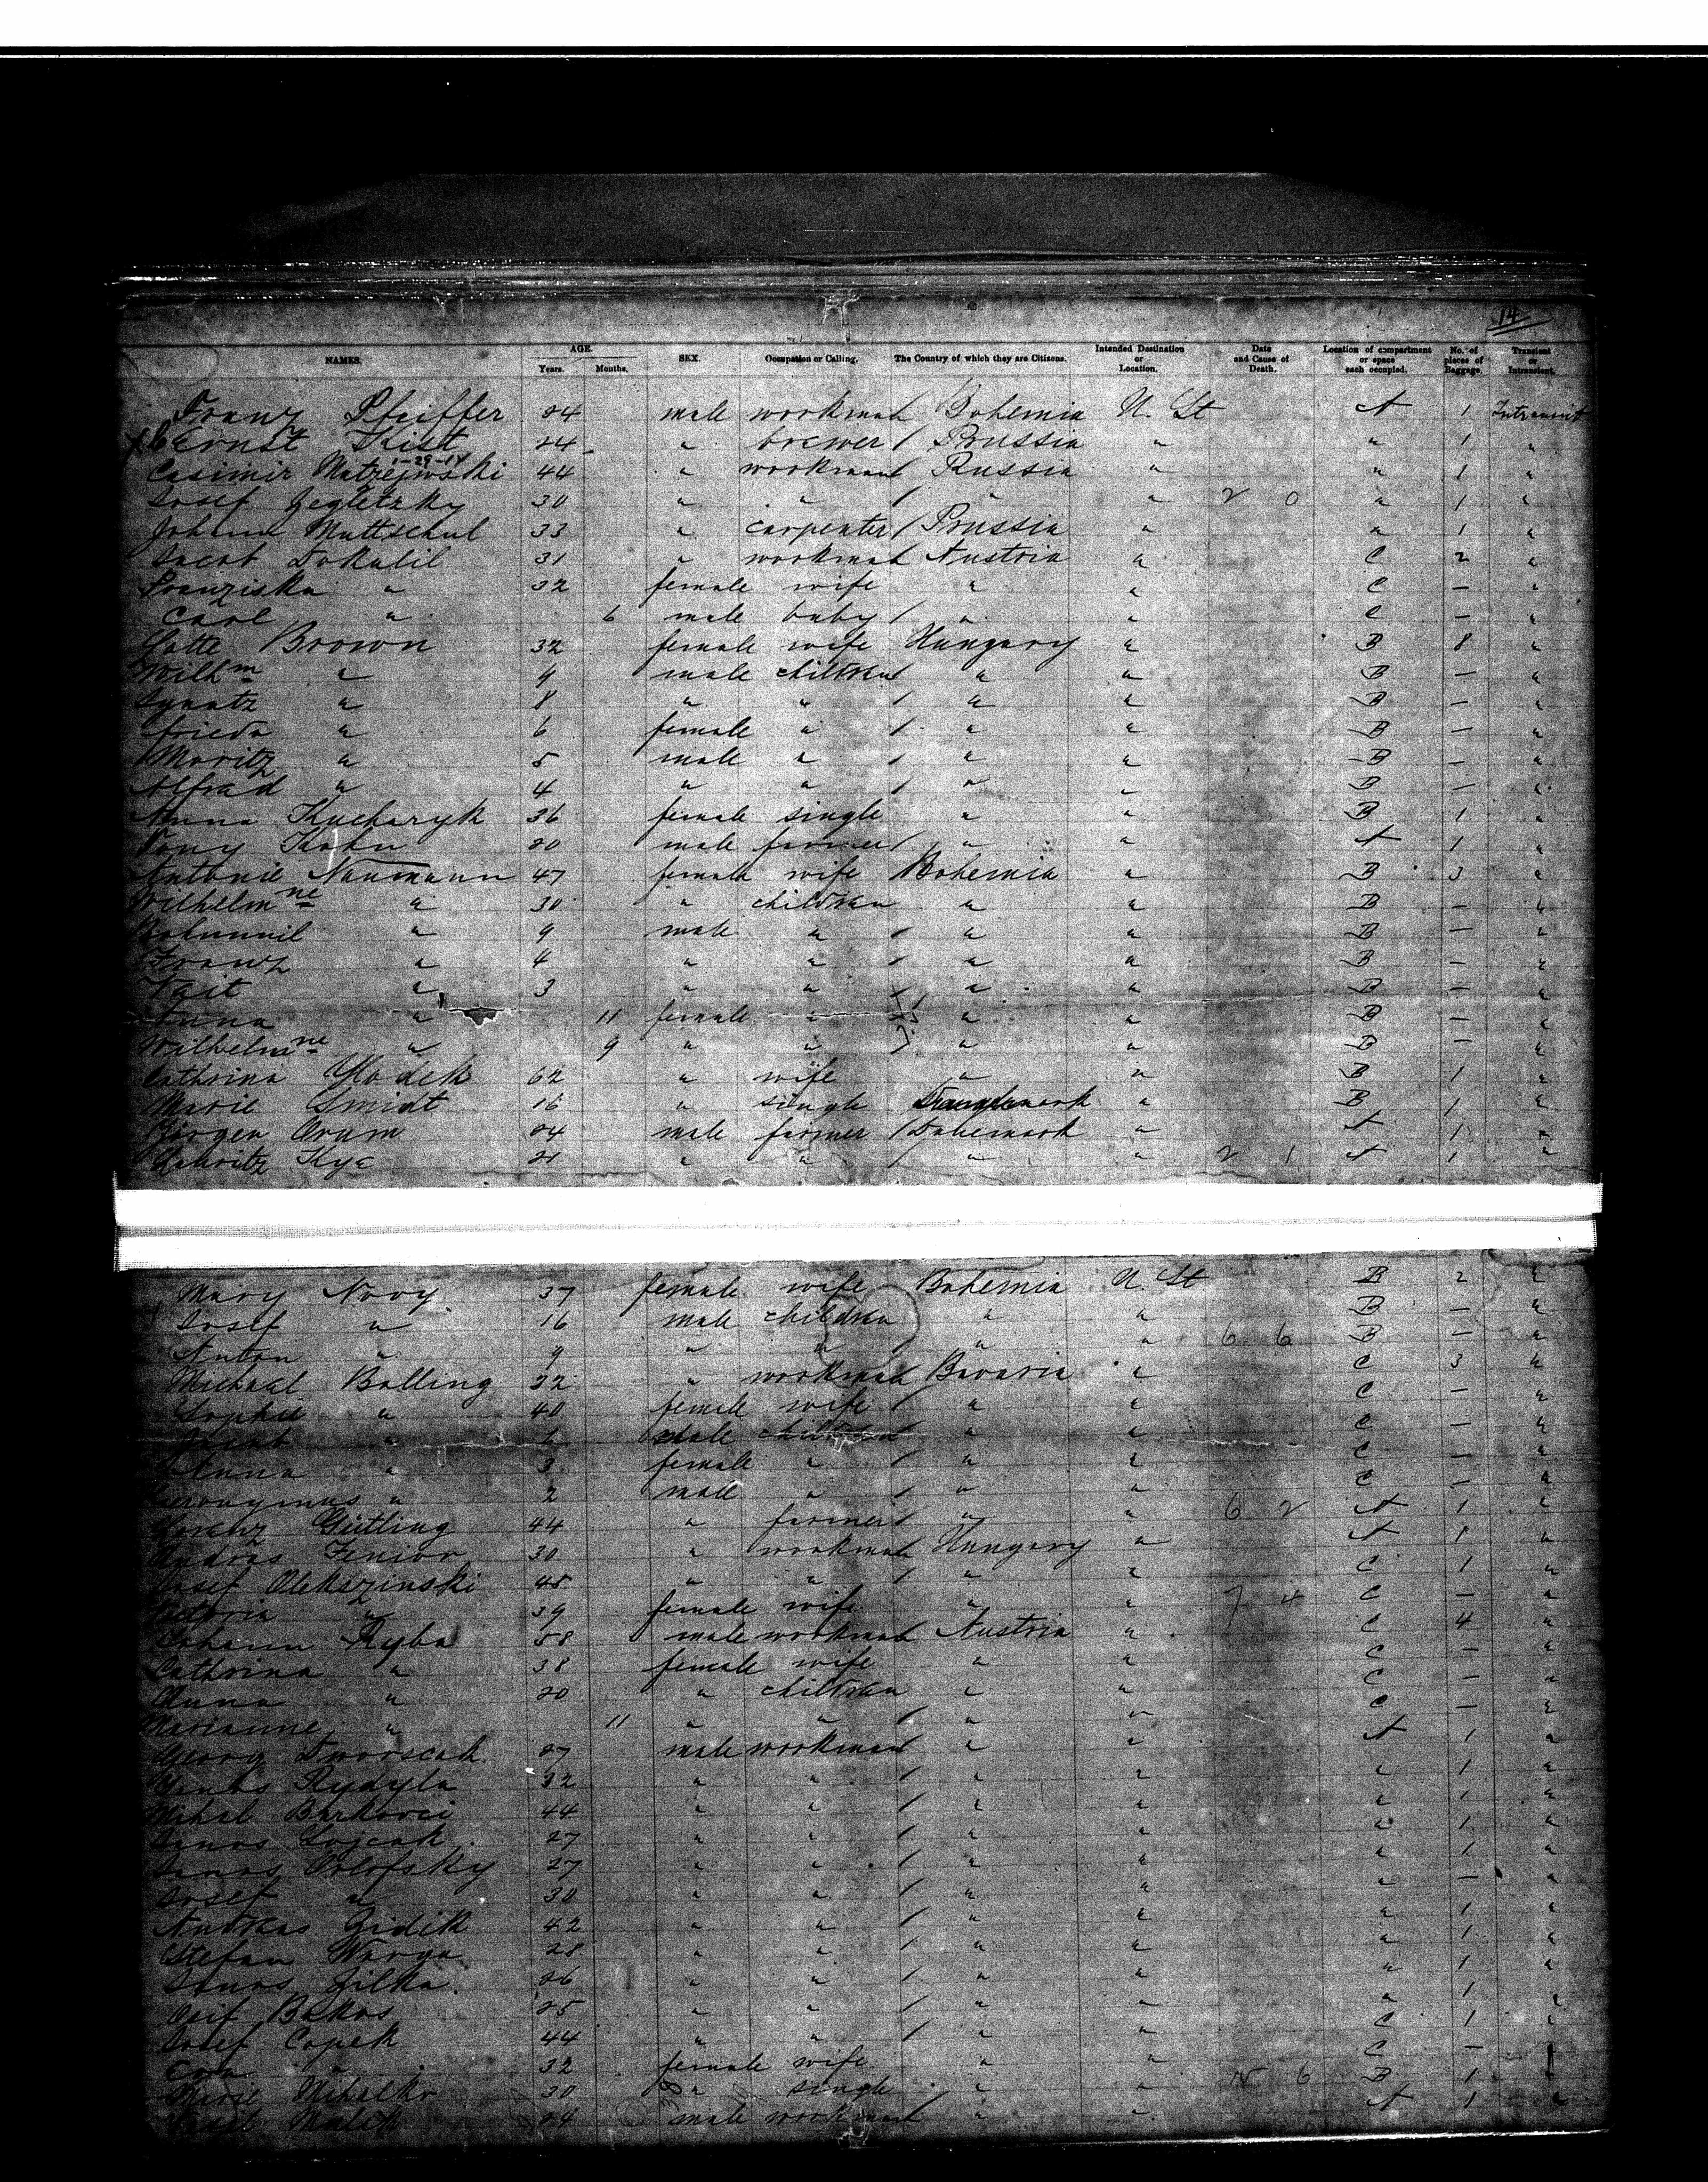 14
NAMES. AGE. Years. Months. SEX. Occupation or Calling. The Country of which they are Citizens. Intended Destination or Location. Date and Cause of Death. Location of compartment or space each occupied. No. of pieces of Baggage. Transient or Intransient.
Franz Pfeiffer 24 male workman Bohemia U. St A 1 Intransit
X Ernst Kist 24 " brewer / Prussia " " 1 "
1-29-14
Casimir Matzejewski 44 " workman Russia " " 1 "
Josef Zegletzky 30 " " / " " 2 0 " 1 "
Johann Muttschul 33 " carpenter / Prussia " " 1 "
Jacob Dokulil 31 " workman Austria " C 2 "
Franziska " 32 female wife " " C — "
Carl " 6 male baby / " " C — "
Lotte Brown 32 female wife Hungary " B 8 "
Wilhm " 9 male children " " B — "
Ignatz " 8 " " / " " B — "
Frieda " 6 female " / " " B — "
Moritz " 5 male " / " " B — "
Alfrad " 4 " " / " " B — "
Anna Kucharyk 36 female single " " B 1 "
Kohn 20 male farmer / " " A 1 "
Antonie Naumann 47 female wife Bohemia " B 3 "
Wilhelmne " 30 " children " " B — "
Bohumil " 9 male " / " " B — "
Franz " 4 " " / " " B — "
" 3 " " / " " B — "
Anna " 11 female " " " B — "
Wilhelmne " 9 " " / " " B — "
Cathrina Hodek 62 " wife " " B 1 "
Marie Smidt 16 " single " B 1 "
Jörgen Orum 24 male farmer / Danemark " A 1 "
Lauritz Kye 21 " " / " " 2 1 A 1 "
Mary Novy 37 female wife Bohemia U. St B 2 "
Josef " 16 male children " " B — "
Anton " 9 " " " " 6 6 B — "
Michael Balling 32 " workman Bavaria " C 3 "
Sophie " 40 female wife / " " C — "
" male children " " C — "
Anna " 3 female " / " " C — "
Hieronymus " 2 male " / " " C — "
Lorenz Gütling 44 " farmer / " " 6 2 A 1 "
Andras Fenior 30 " workman Hungary " A 1 "
Josef Olekszinski 45 " " / " " C 1 "
Victoria " 39 female wife " " 7 4 C — "
Johann Ryba 58 male workman Austria " C 4 "
Cathrina " 38 female wife " " C — "
Anna " 20 " children " " C — "
Marianne " 11 " " / " " C — "
Georg Dworscak 27 male workman " " A 1 "
Rydyla 32 " " / " " " 1 "
Mihal Barkovci 44 " " / " " " 1 "
Janos Lojcak 27 " " / " " " 1 "
Janos Orlofsky 27 " " / " " " 1 "
Josef " 30 " " / " " " — "
Andreas Zidik 42 " " / " " " 1 "
Stefan Warga 28 " " / " " " 1 "
Janos Zilka 26 " " / " " " 1 "
Bakos 25 " " / " " " 1 "
Josef Copek 44 " " / " " C 1 "
" 32 female wife " " C — "
Marie Mihalko 30 " single " " 15 6 B 1 "
24 male workman " " A 1 "